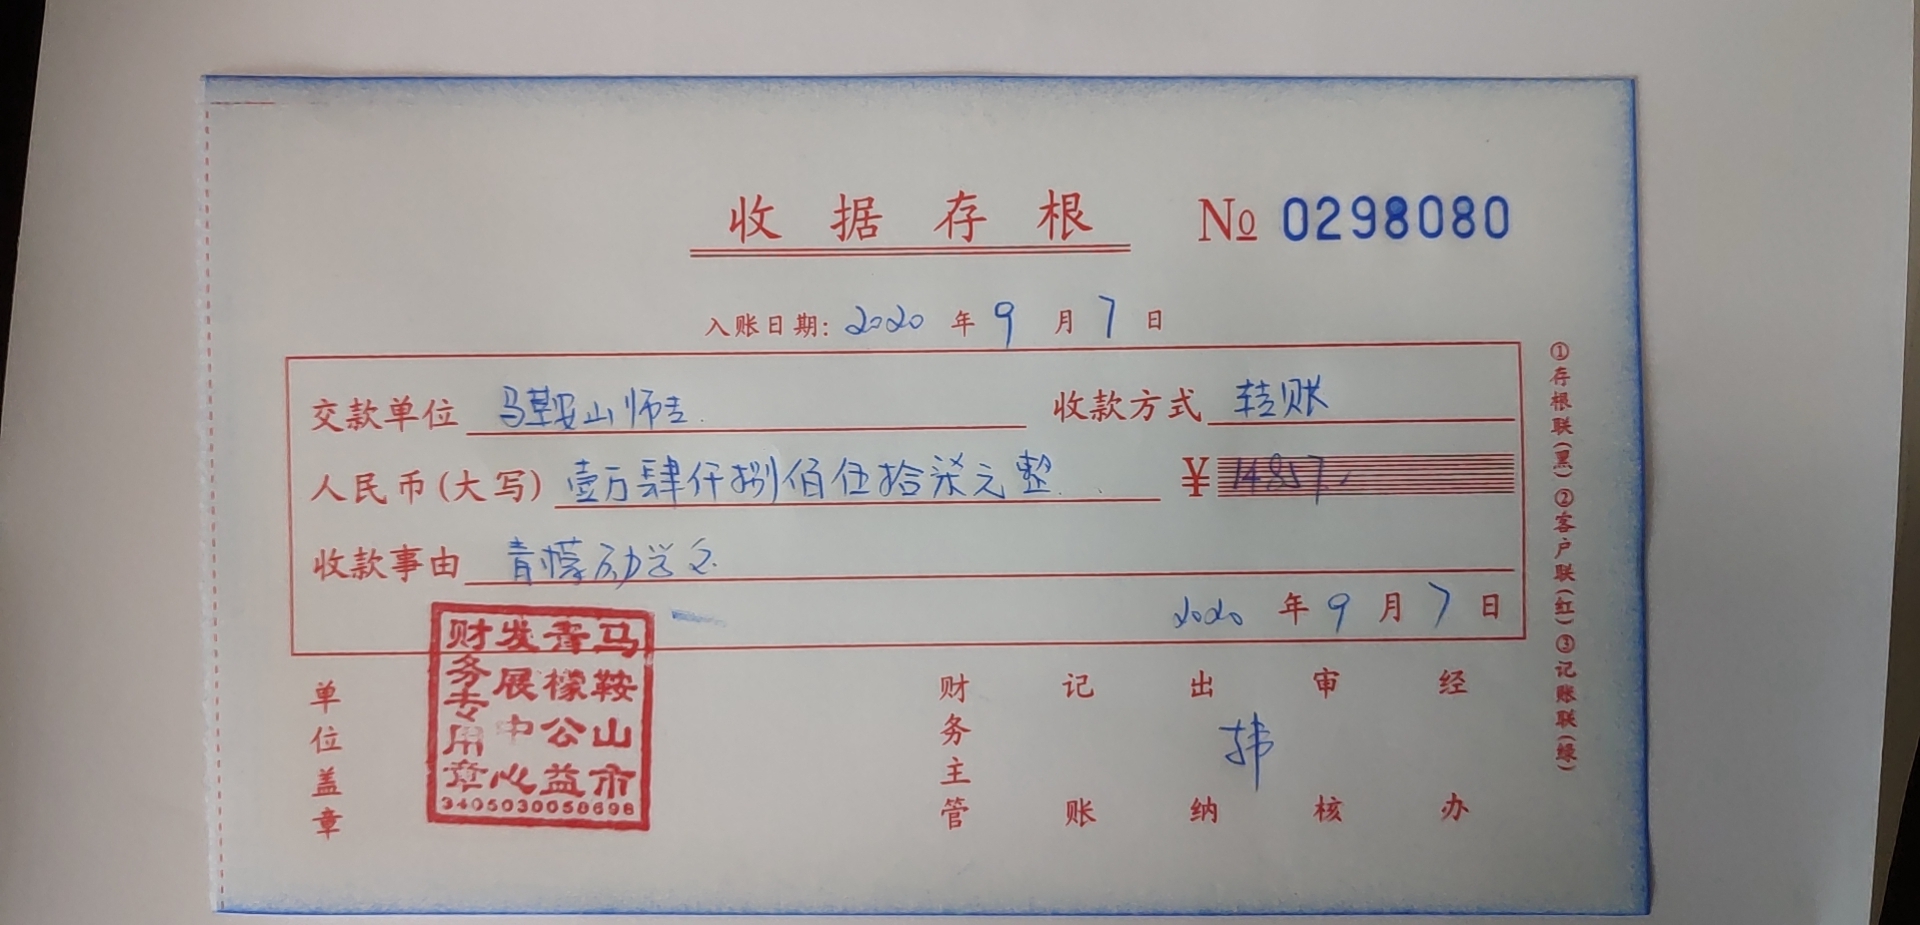 收据存根 № 0298080
入账日期: 2020 年 9 月 7 日
交款单位 马鞍山师专. 收款方式 转账
人民币(大写) 壹万肆仟捌佰伍拾柒元整 ¥ 14857.
收款事由 青檬励学
2020 年 9 月 7 日
单位盖章
马鞍山市
青檬公益
发展中心
财务专用章
3405030050698
财务主管 记账 出纳 韩 审核 经办
①存根联(黑)②客户联(红)③记账联(绿)